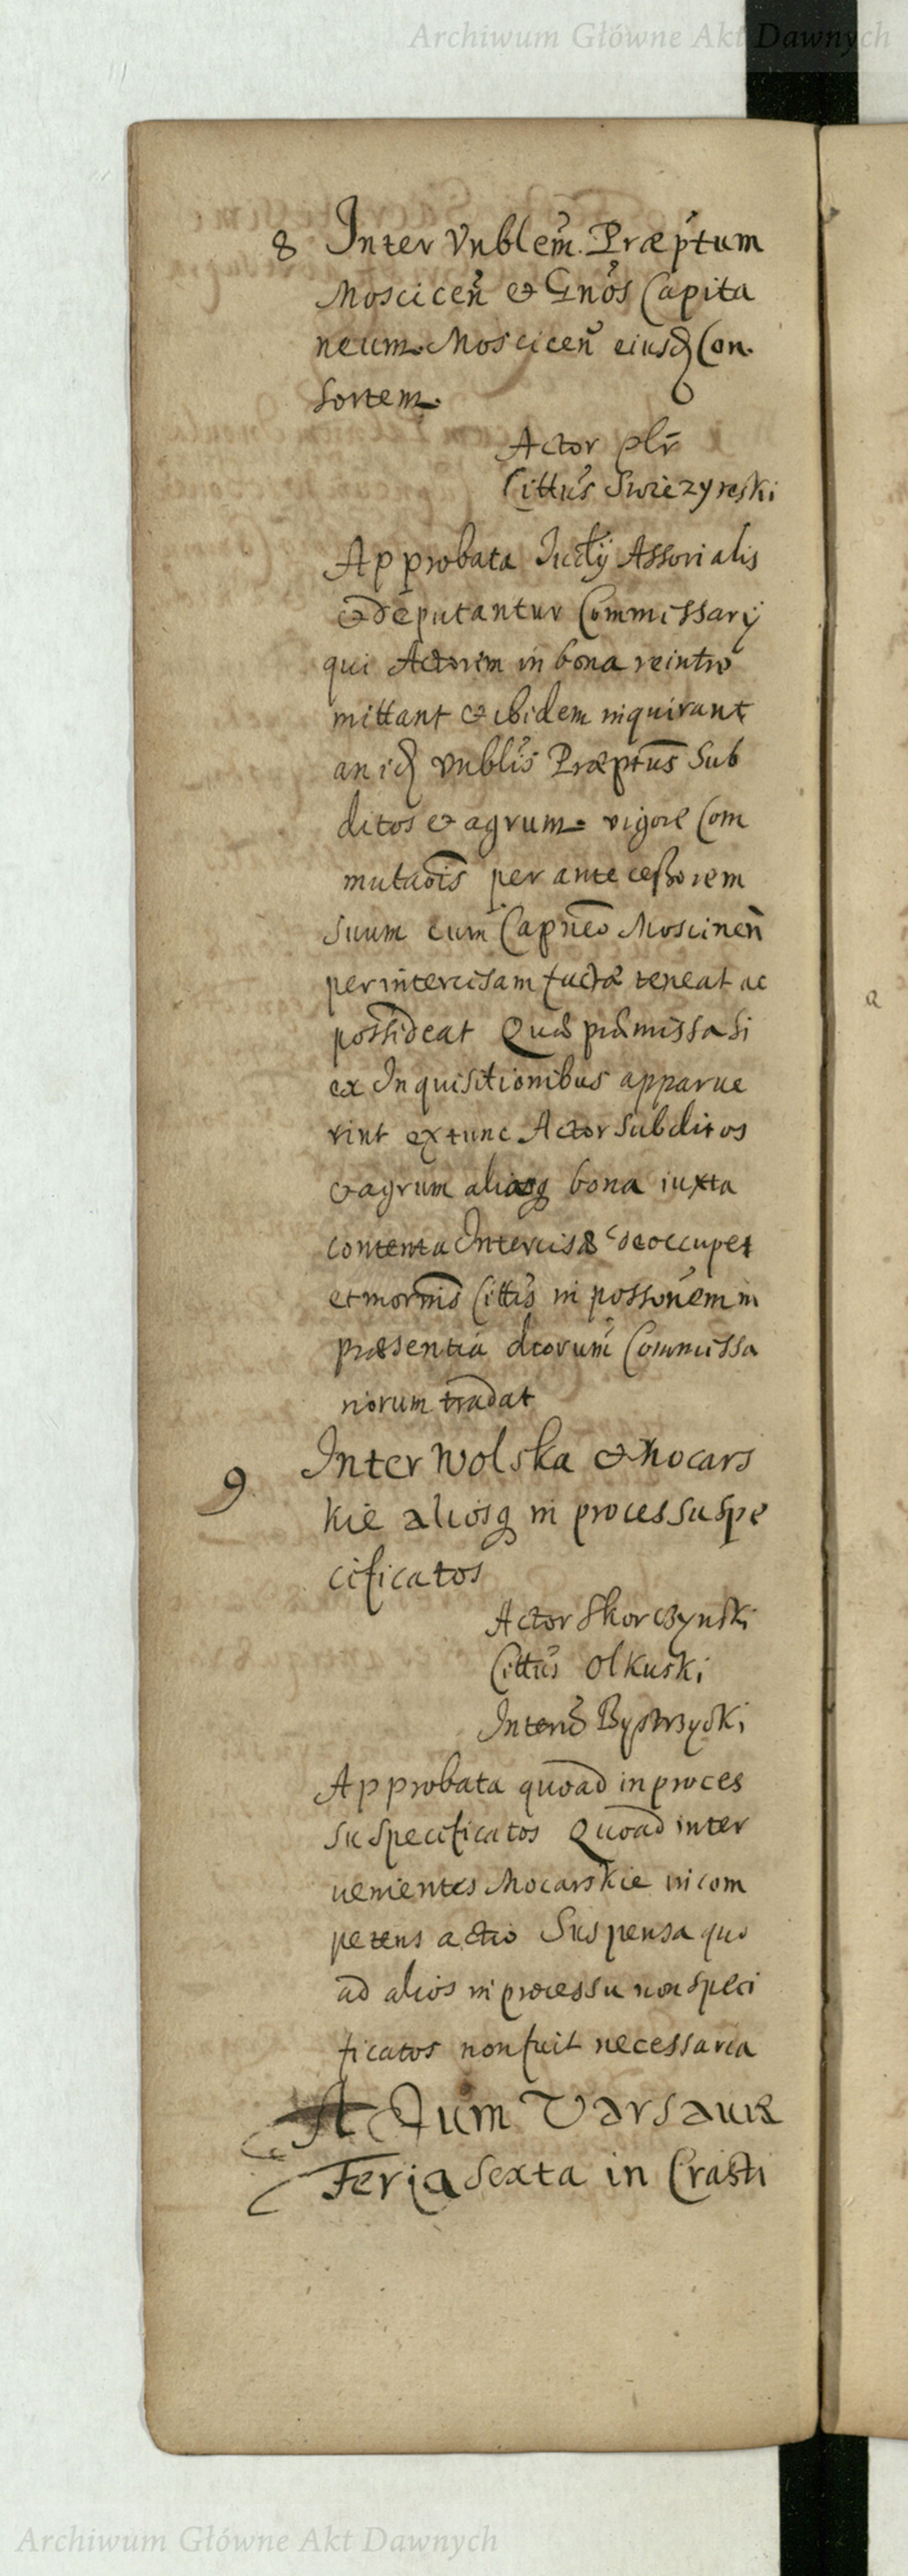 Archiwum Główne Akt Dawnych
8 Inter Vnblem̃. Præp̃tum
Moscicen̄ & Gnõs Capita
neum. Moscicen̄ eiusdꝫ Con.
sortem.
Actor plr̃
Cittũs Swiezynski
Approbata Juctĩj Assorialis
& deputantur Commissarij
qui Actorem in bona reintro
mittant & ibidem inquirant
an idꝫ Vnblĩs Præptũs Sub
ditos & agrum vigore Com
mutaõis per antecessorem
suum cum Capnẽo Moscinen̄
per intercisam factã teneat ac
possideat Quæ præmissa si
ex Inquisitionibus apparue
rint extunc Actor Subditos
& agrum aliaqꝫ bona iuxta
contenta Intercisæ deoccupet
et in Cittĩs in possonẽm in
præsentia dtorum̃ Commissa
riorum tradat
9 Inter Wolska & Mocars
kie aliosqꝫ in processu spe
cificatos
Actor Skorczynski
Cittũs Olkuski
Intern̄s Bystrzycki
Approbata quoad in proces
su specificatos Quoad inter
uenientes Mocarskie incom
petens actio Suspensa quo
ad alios in processu non speci
ficatos non fuit necessaria
Actum Varsauiæ
Feria sexta in Crasti
a
Archiwum Główne Akt Dawnych